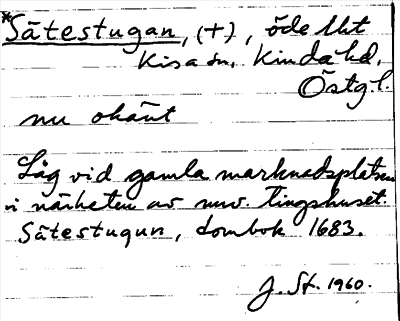 *Sätestugan, (+), öde lht
Kisa sn, Kinda hd,
Östgl.
nu okänt
Låg vid gamla marknadsplatsen
i närheten av nuv. tingshuset.
Sätestugun, dombok 1683.
J. St. 1960.